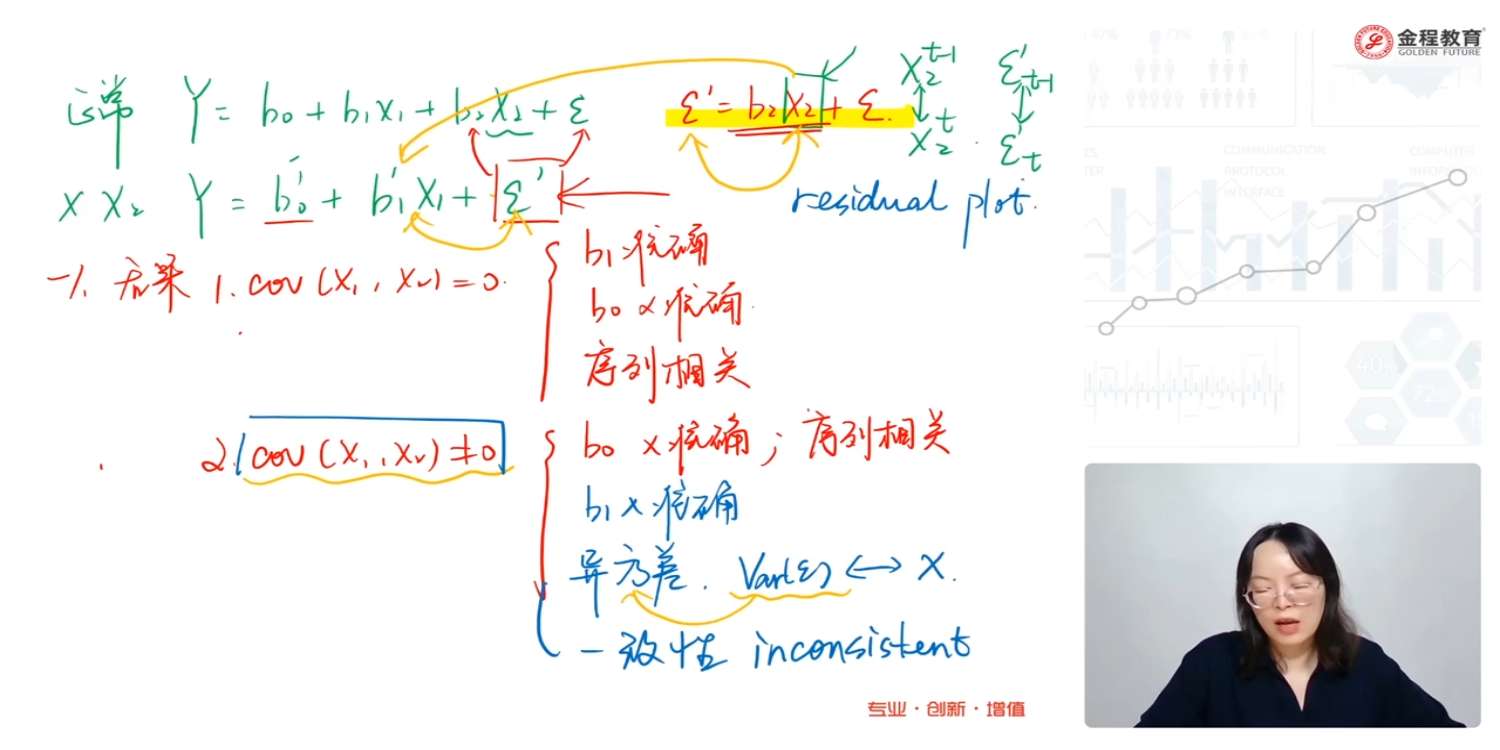 金程教育
GOLDEN FUTURE
正常 Y = b₀ + b₁x₁ + b₂x₂ + ε
ε' = b₂x₂ + ε.
X₂ᵗ⁻¹ ε'ₜ₋₁
X₂ᵗ . ε'ₜ
× X₂ Y = b₀' + b₁'X₁ + ε'
residual plot.
1. cov (X₁, X₂) = 0.
b₁ 准确
b₀ × 准确.
序列相关
2. cov (X₁, X₂) ≠ 0
b₀ × 准确; 序列相关
b₁ × 准确
异方差. Var(ε) ↔ X.
一致性 inconsistent
专业·创新·增值
COMMUNICATION
PROTOCOL
INTERFACE